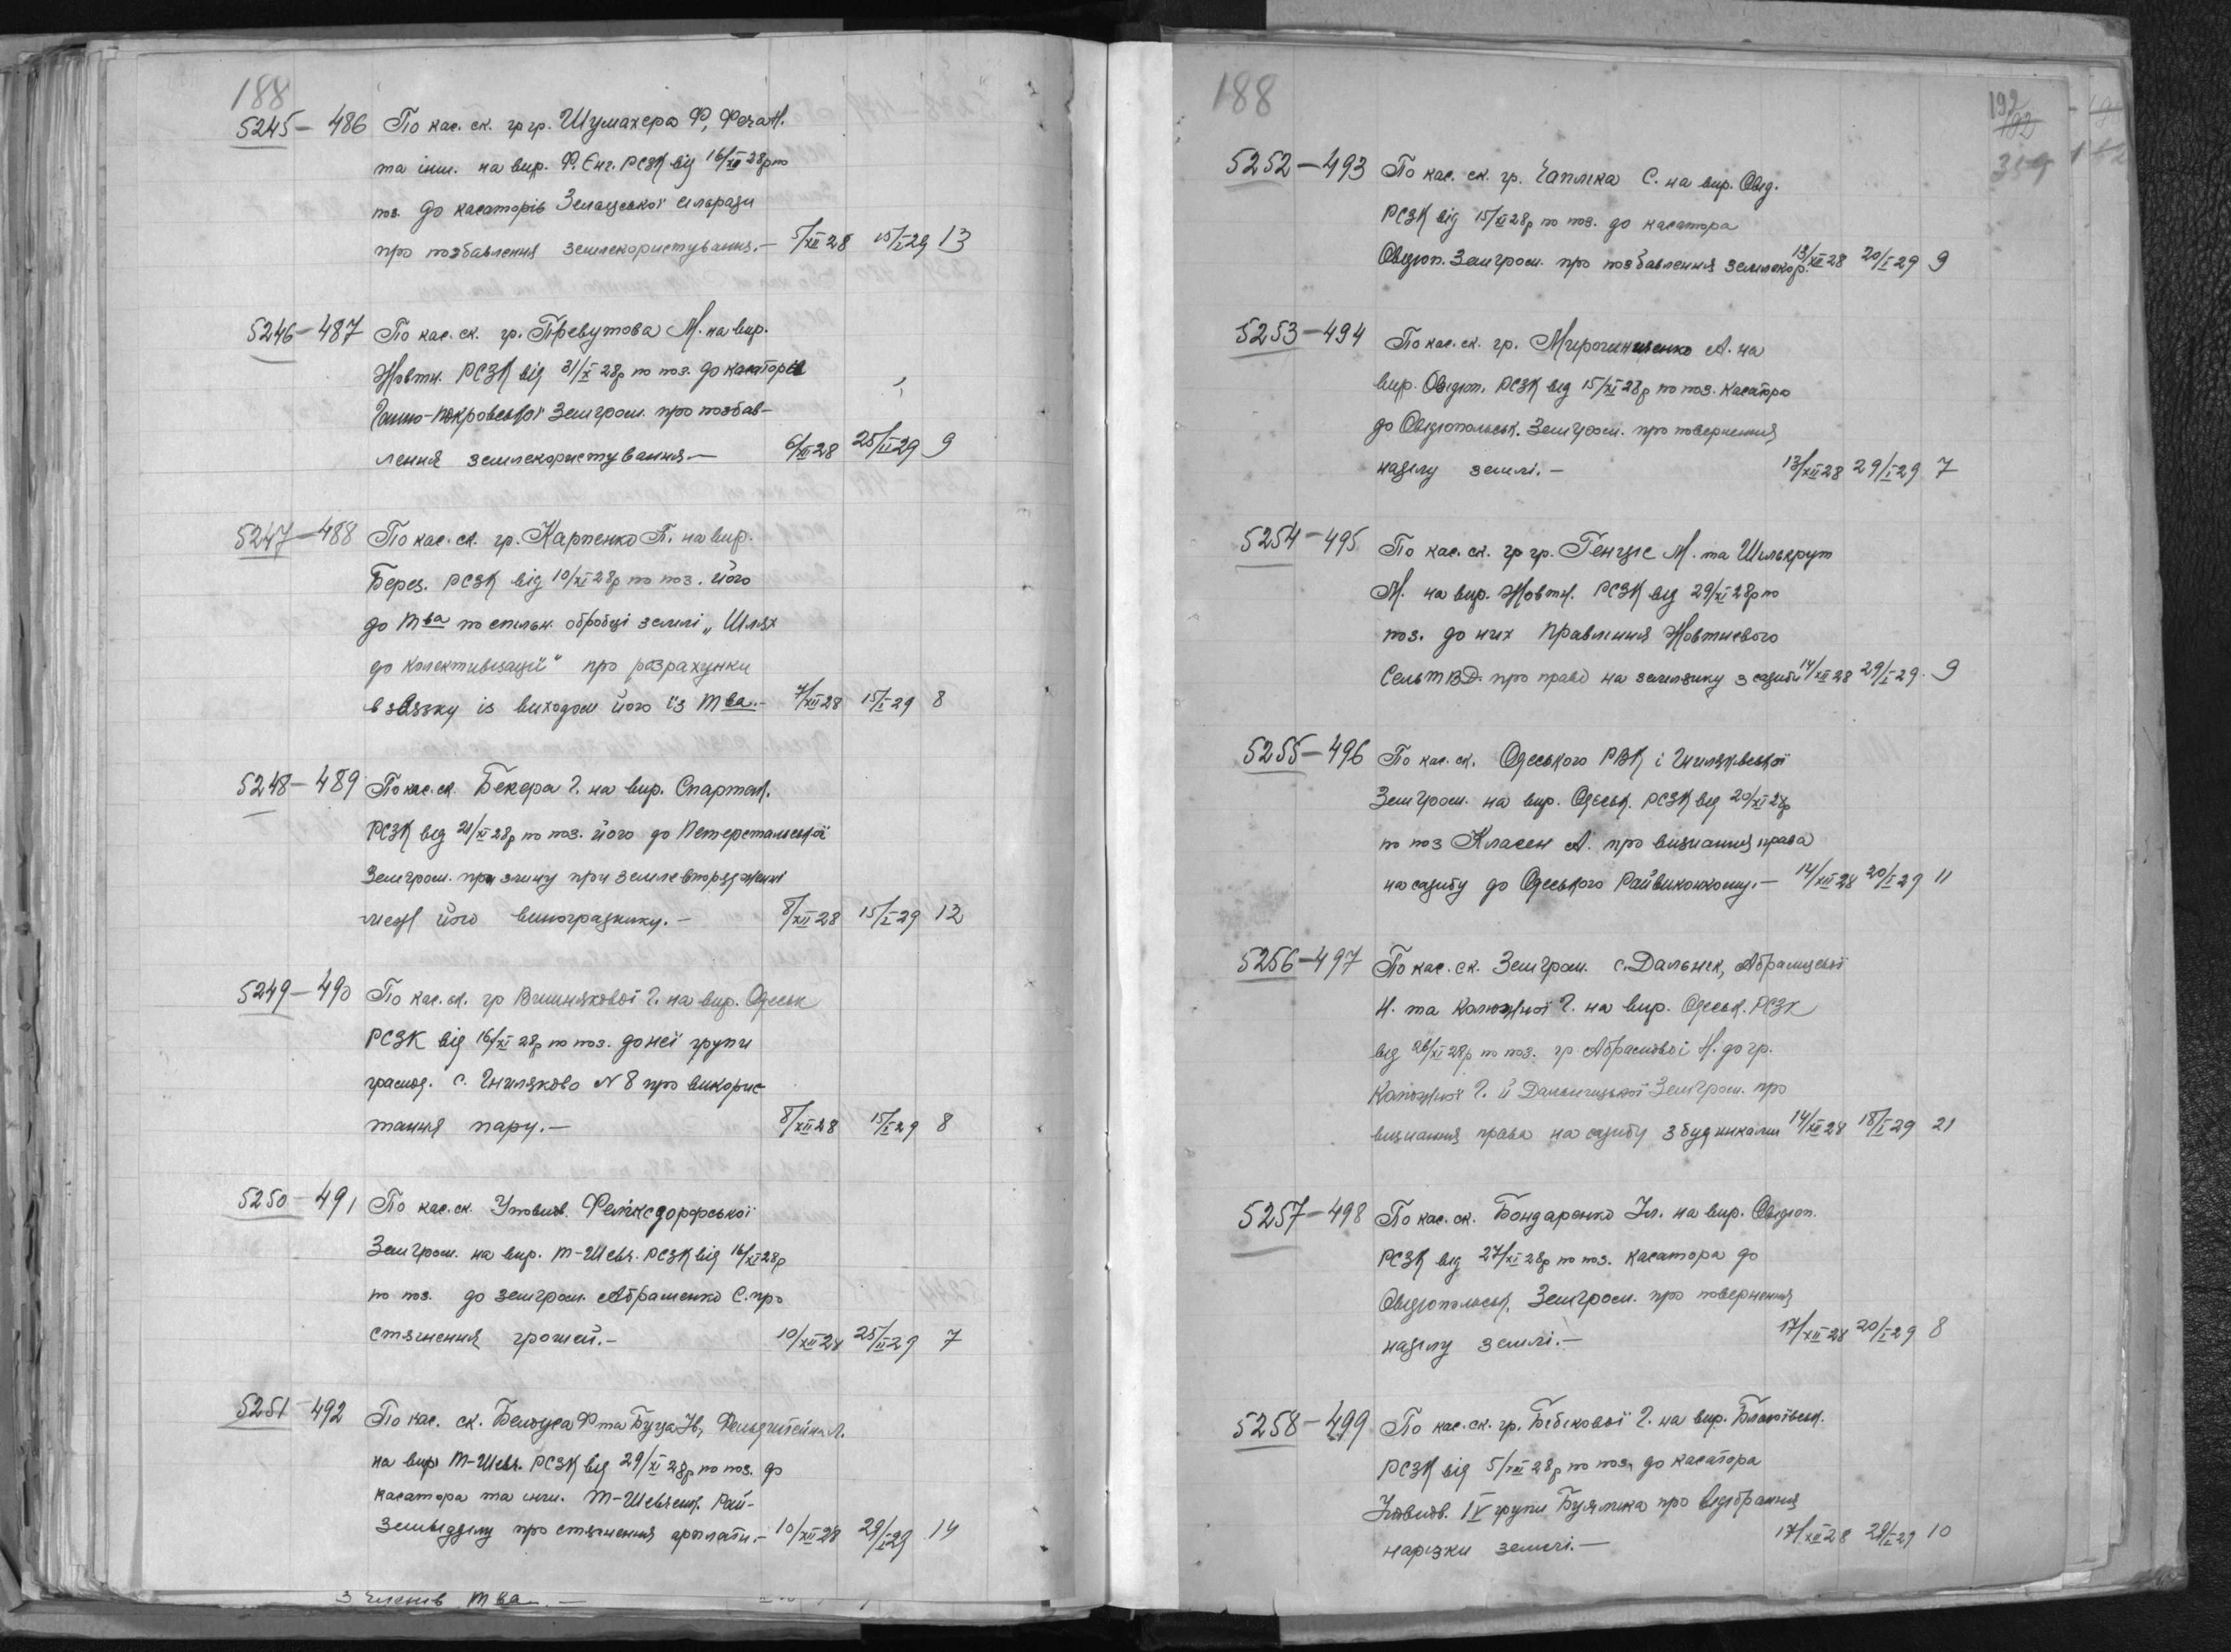 188
5245 — 486 По кас. ск. гр гр. Шумахера Ф, Феча Н.
та інш. на вир. Ф. Енг. РСЗК від 16/XII 28р по
поз. до касаторів Зельцської сільради
про позбавлення землекористування. — 5/XII 28 15/I 29 13
5246 — 487 По кас. ск. гр. Превутова М. на вир.
Жовтн. РСЗК від 31/X 28р по поз. до касатора
Ганно-ПокровськоїЗемгром. про позбав-
лення землекористування — 6/XII 28 25/II 29 9
5247 — 488 По кас. ск. гр. Карпенко П. на вир.
Берез. РСЗК від 10/XI 28р по поз. його
до Т ва по спільн. обробці землі „Шлях
до колективізації" про розрахунки
в звязку із виходом його із Т ва. — 7/XII 28 15/I 29 8
5248 — 489 По кас. ск. Бекера Г. на вир. Спартак.
РСЗК від 21/XI 28р по поз. його до Петерстальської
Земгром. при землевпорядженні
його винограднику. — 8/XII 28 15/I 29 12
5249 — 490 По кас. ск. гр Вишнякової Г. на вир. Одеськ
РСЗК від 16/XI 28р по поз. до неї групи
громад. с. Гниляково N 8 про викорис-
тання пару. — 8/XII 28 15/I 29 8
5250 — 491 По кас. ск. Уповнов. Феліксдорфської
Земгром. на вир. Т-Шевч. РСЗК від 16/XI 28р
по поз. до земгром. Абраменко С. про
стягнення грошей. — 10/XII 28 25/II 29 7
5251 — 492 По кас. ск. Белоуса Ф та Буца Ів, Фельдштейна Л.
на вир. Т-Шевч. РСЗК від 29/XI 28р по поз. до
касатора та інш. Т-Шевченк. Рай-
земвідділу про стягнення орплати. — 10/XII 28 29/I 29 14
з членів Т ва. —
188
192
182
319
5252 — 493 По кас. ск. гр. Чапліка С. на вир. Овід.
РСЗК від 15/XI 28р по поз. до касатора
Овідіоп. Земгром. про позбавлення землекор. 13/XII 28 20/I 29 9
5253 — 494 По кас. ск. гр. Мирошниченко А. на
вир. Овідіоп. РСЗК від 15/XI 28р по поз. касатора
до Овідіопольськ. Земгром. про повернення
наділу землі. — 13/XII 28 29/I 29 7
5254 — 495 По кас. ск. гр гр. Генціс М. та Шількрут
М. на вир. Жовтн. РСЗК від 29/XI 28р по
поз. до них Правління Жовтневого
СельТВД. про право на землянку з садиби 14/XII 28 29/I 29 9
5255 — 496 По кас. ск. Одеського РВК і Гниляківської
Земгром. на вир. Одеськ. РСЗК від 20/XI 28р
по поз Класен А. про визнання права
на садибу до Одеського Райвиконкому. — 14/XII 28 20/I 29 11
5256 — 497 По кас. ск. Земгром. с. Дальнік, Абрамцевої
Н. та Калюжної Г. на вир. Одеськ. РСЗК
від 26/XI 28р по поз. гр Абрамової Н. до гр.
Калюжної Г. й Дальницької Земгром. про
визнання права на садибу з будинками 14/XII 28 18/I 29 21
5257 — 498 По кас. ск. Бондаренко Іл. на вир. Овідіоп.
РСЗК від 27/XI 28р по поз. касатора до
Овідіопольськ. Земгром. про повернення
наділу землі. — 17/XII 28 20/I 29 8
5258 — 499 По кас. ск. гр. Бебекової Г. на вир. Благоївськ.
РСЗК від 5/XII 28р по поз. до касатора
Уповнов. IV групи Буялика про відібрання
нарізки землі. — 17/XII 28 29/I 29 10